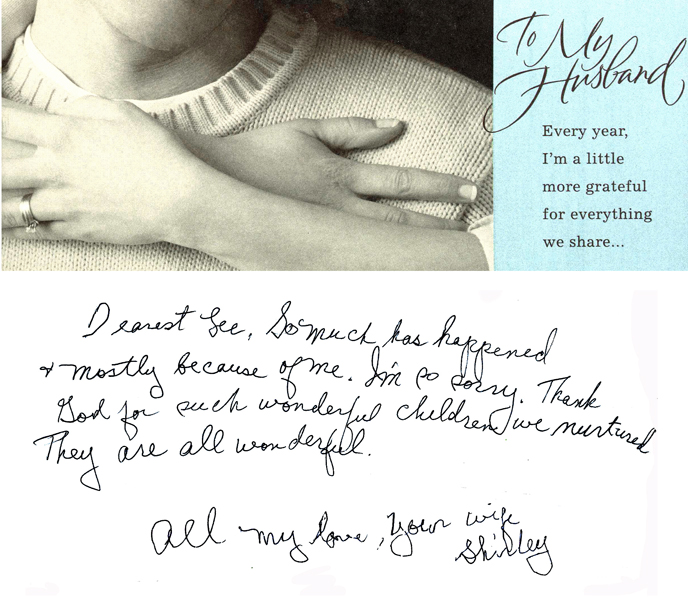 To My
Husband
Every year,
I'm a little
more grateful
for everything
we share...
Dearest Lee, So much has happened
& mostly because of me. I'm so sorry. Thank
God for such wonderful children we nurtured
They are all wonderful.
All my love, your wife
Shirley